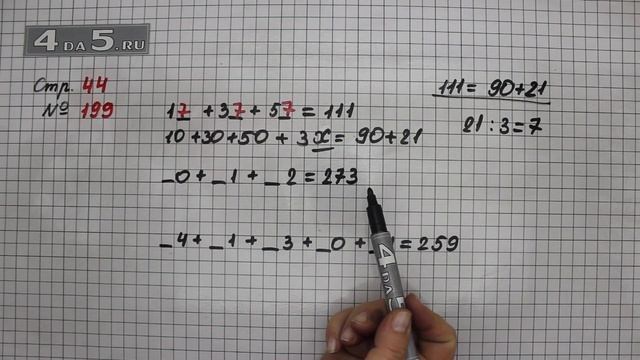 4 ДА 5.RU
Стр. 44
№ 199
17 + 37 + 57 = 111
10 + 30 + 50 + 3x = 90 + 21
_0 + _1 + _2 = 273
_4 + _1 + _3 + _0 + _ = 259
111 = 90 + 21
21 : 3 = 7
4 ДА 5